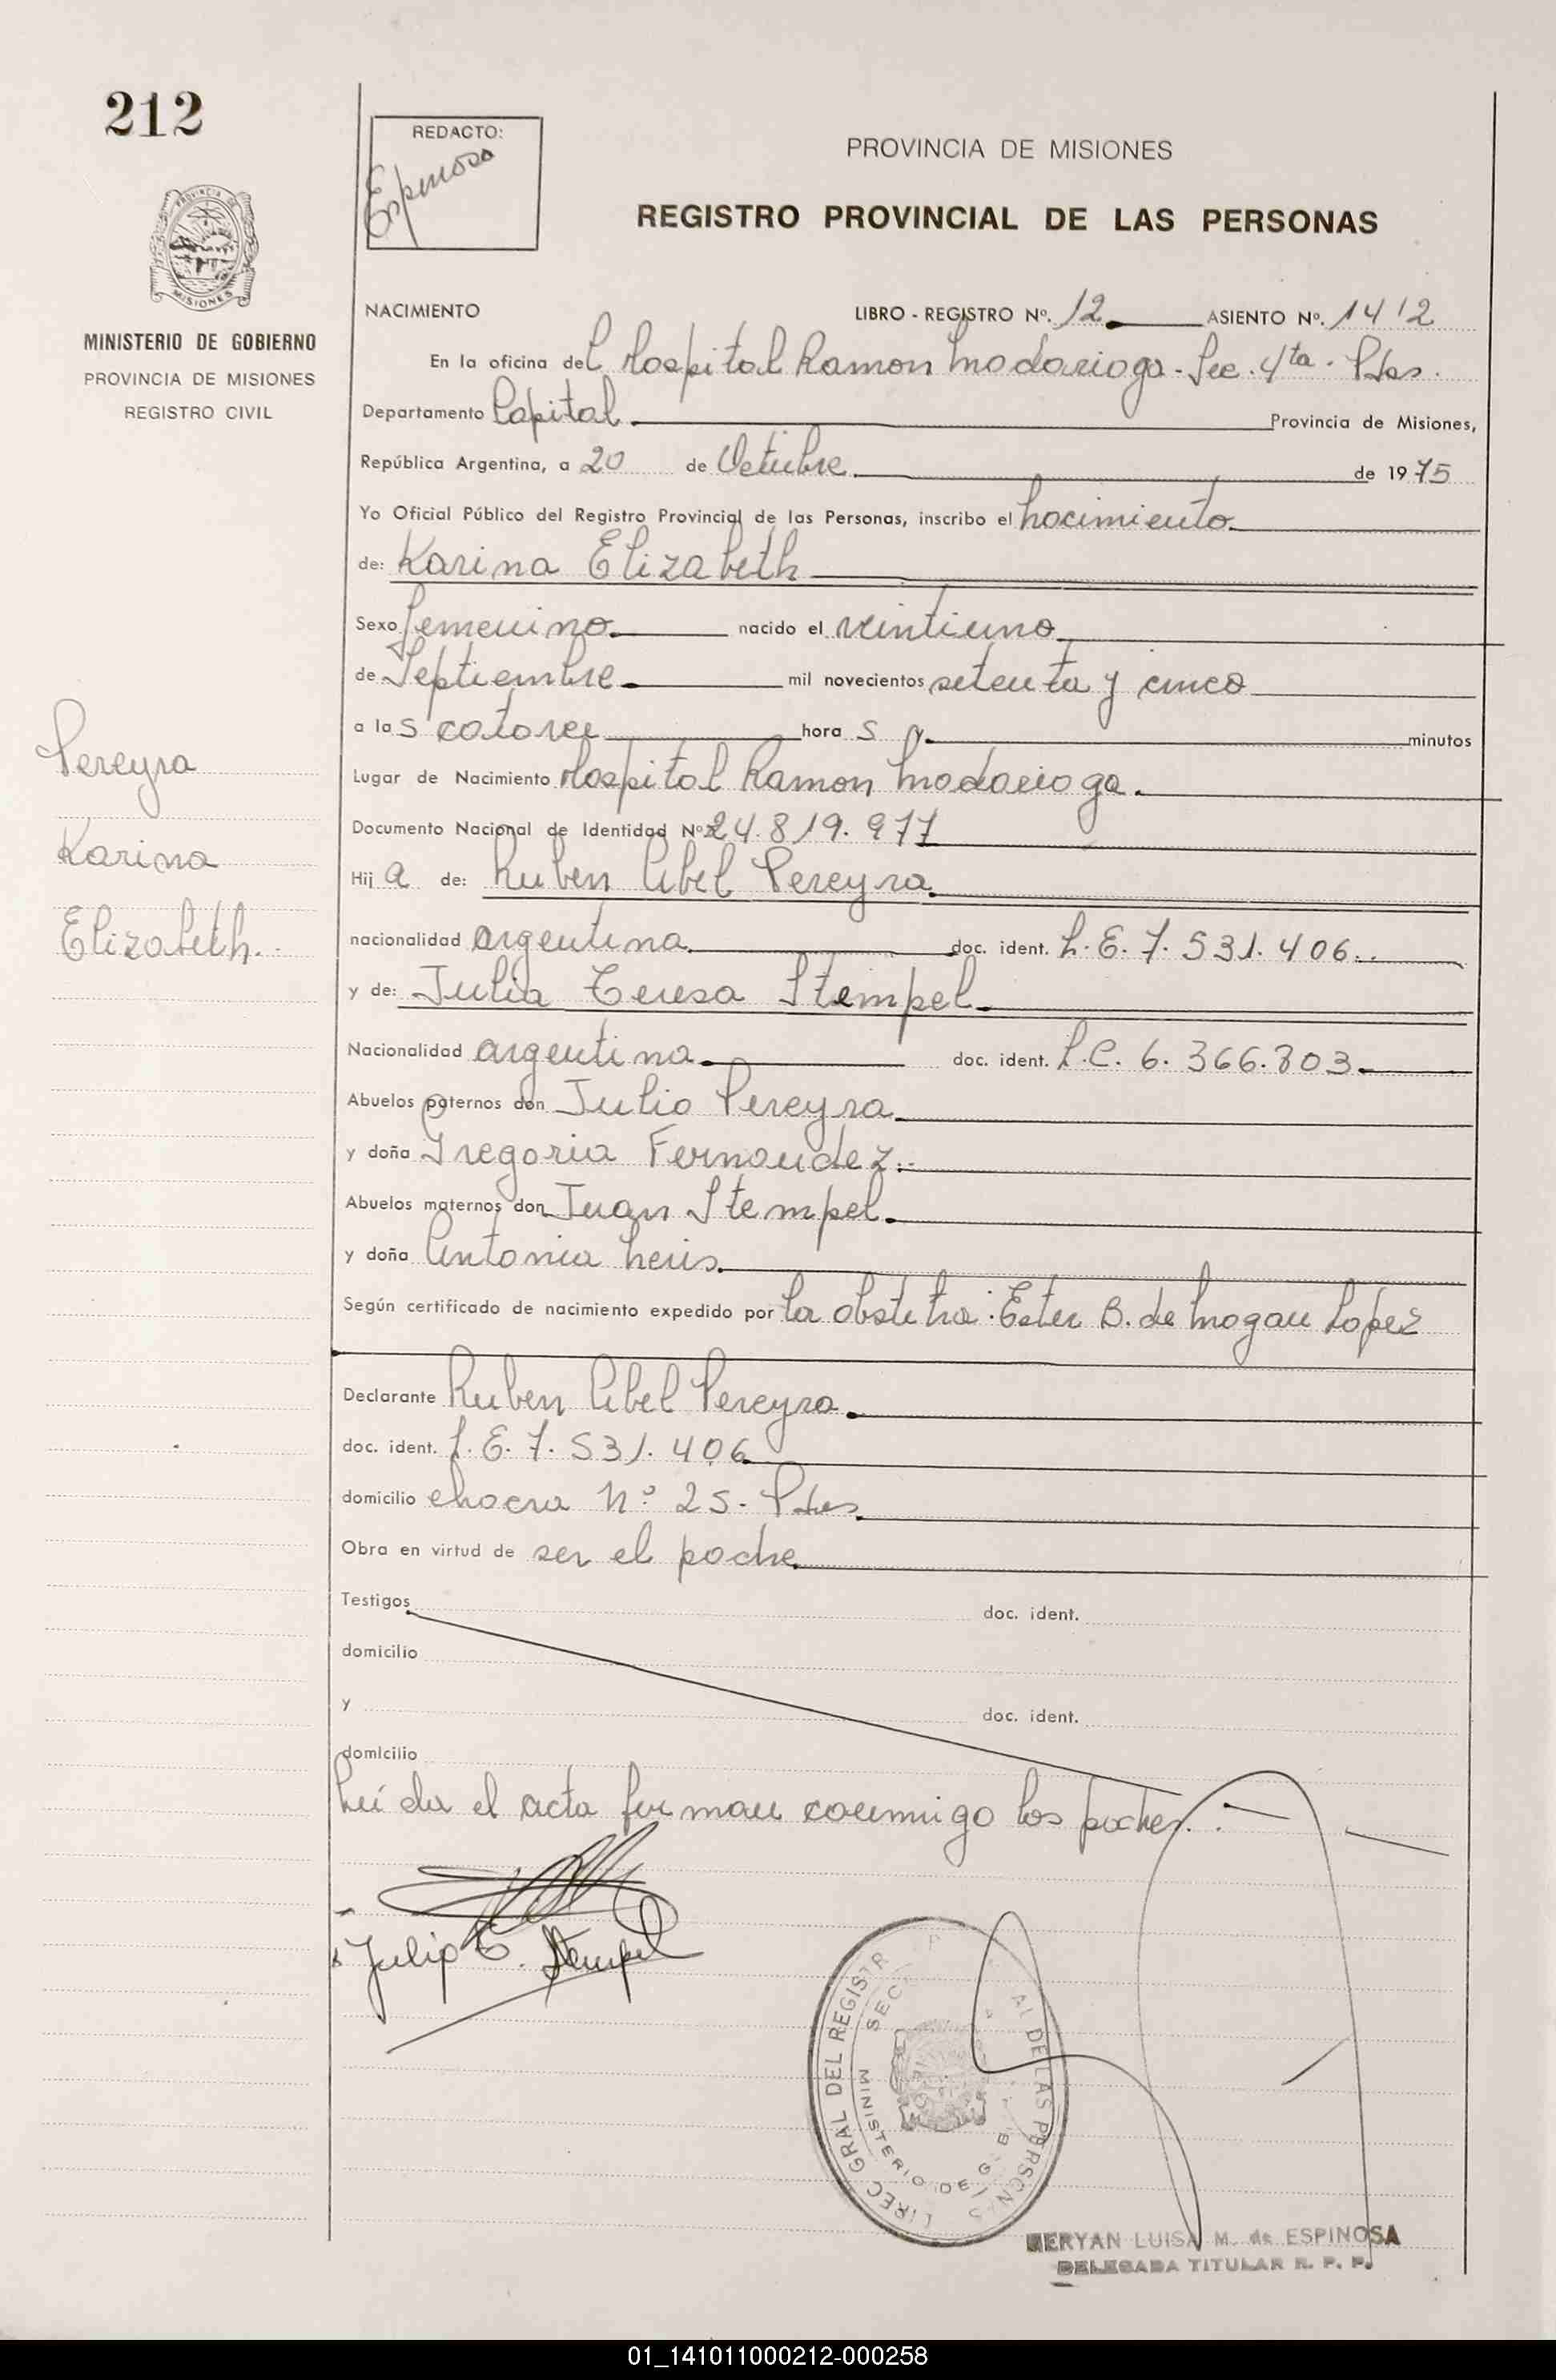 212
REDACTO:
Espinosa
PROVINCIA DE MISIONES
REGISTRO PROVINCIAL DE LAS PERSONAS
PROVINCIA DE
MISIONES
MINISTERIO DE GOBIERNO
PROVINCIA DE MISIONES
REGISTRO CIVIL
NACIMIENTO LIBRO - REGISTRO Nº. 12 ASIENTO Nº. 1412
En la oficina del Hospital Ramon Madariaga - Sec. 4ta. Pdas.
Departamento Capital Provincia de Misiones,
República Argentina, a 20 de Octubre de 1975
Yo Oficial Público del Registro Provincial de las Personas, inscribo el nacimiento
de: Karina Elizabeth
Sexo femenino nacido el veintiuno
de Septiembre mil novecientos setenta y cinco
a las catorce horas y minutos
Lugar de Nacimiento Hospital Ramon Madariaga.
Documento Nacional de Identidad Nº 24.819.977
Hija de: Ruben Abel Pereyra
nacionalidad argentina doc. ident. L.E. 7.531.406.
y de: Julia Teresa Stempel
Nacionalidad argentina doc. ident. L.C. 6.366.803
Abuelos paternos don Julio Pereyra
y doña Gregoria Fernandez.
Abuelos maternos don Juan Stempel
y doña Antonia
Según certificado de nacimiento expedido por la obstetra: Ester B. de Lopez
Declarante Ruben Abel Pereyra
doc. ident. L.E. 7.531.406
domicilio chacra Nº 25. Pdas
Obra en virtud de ser el padre
Testigos doc. ident.
domicilio
y doc. ident.
domicilio
Leída el acta firman conmigo los padres.
Pereyra
Karina
Elizabeth.
Julia T. Stempel
DIREC GRAL DEL REGISTR AL DE LAS PERSONAS
SEC
MINISTERIO DE G. B.
MERYAN LUISA M. de ESPINOSA
DELEGADA TITULAR R. P. P.
01_141011000212-000258